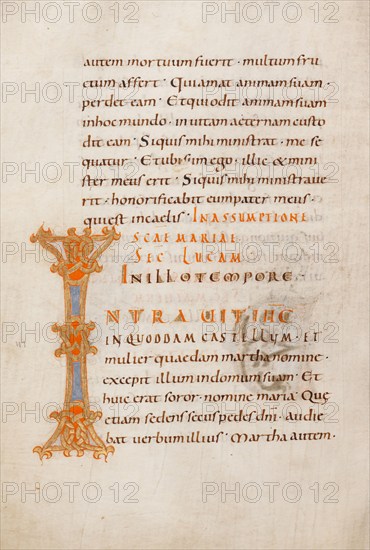 autem mortuum fuerit · multum fru
ctum affert · Qui amat animam suam ·
perdet eam · Et qui odit animam suam
in hoc mundo · in vitam aeternam custo
dit eam · Si quis mihi ministrat · me se
quatur · Et ubi sum ego · illic & mini
ster meus erit · Si quis mihi ministrave
rit · honorificabit eum pater meus ·
qui est in caelis · IN ASSUMPTIONE
SCAE MARIAE
SEC LUCAM
IN ILLO TEMPORE ·
INTRAUIT IHC
IN QUODDAM CASTELLUM · ET
mulier quaedam martha nomine ·
excepit illum in domum suam · Et
huic erat soror · nomine maria · Quę
etiam sedens secus pedes dni · audie
bat verbum illius · Martha autem ·
PHOTO 12